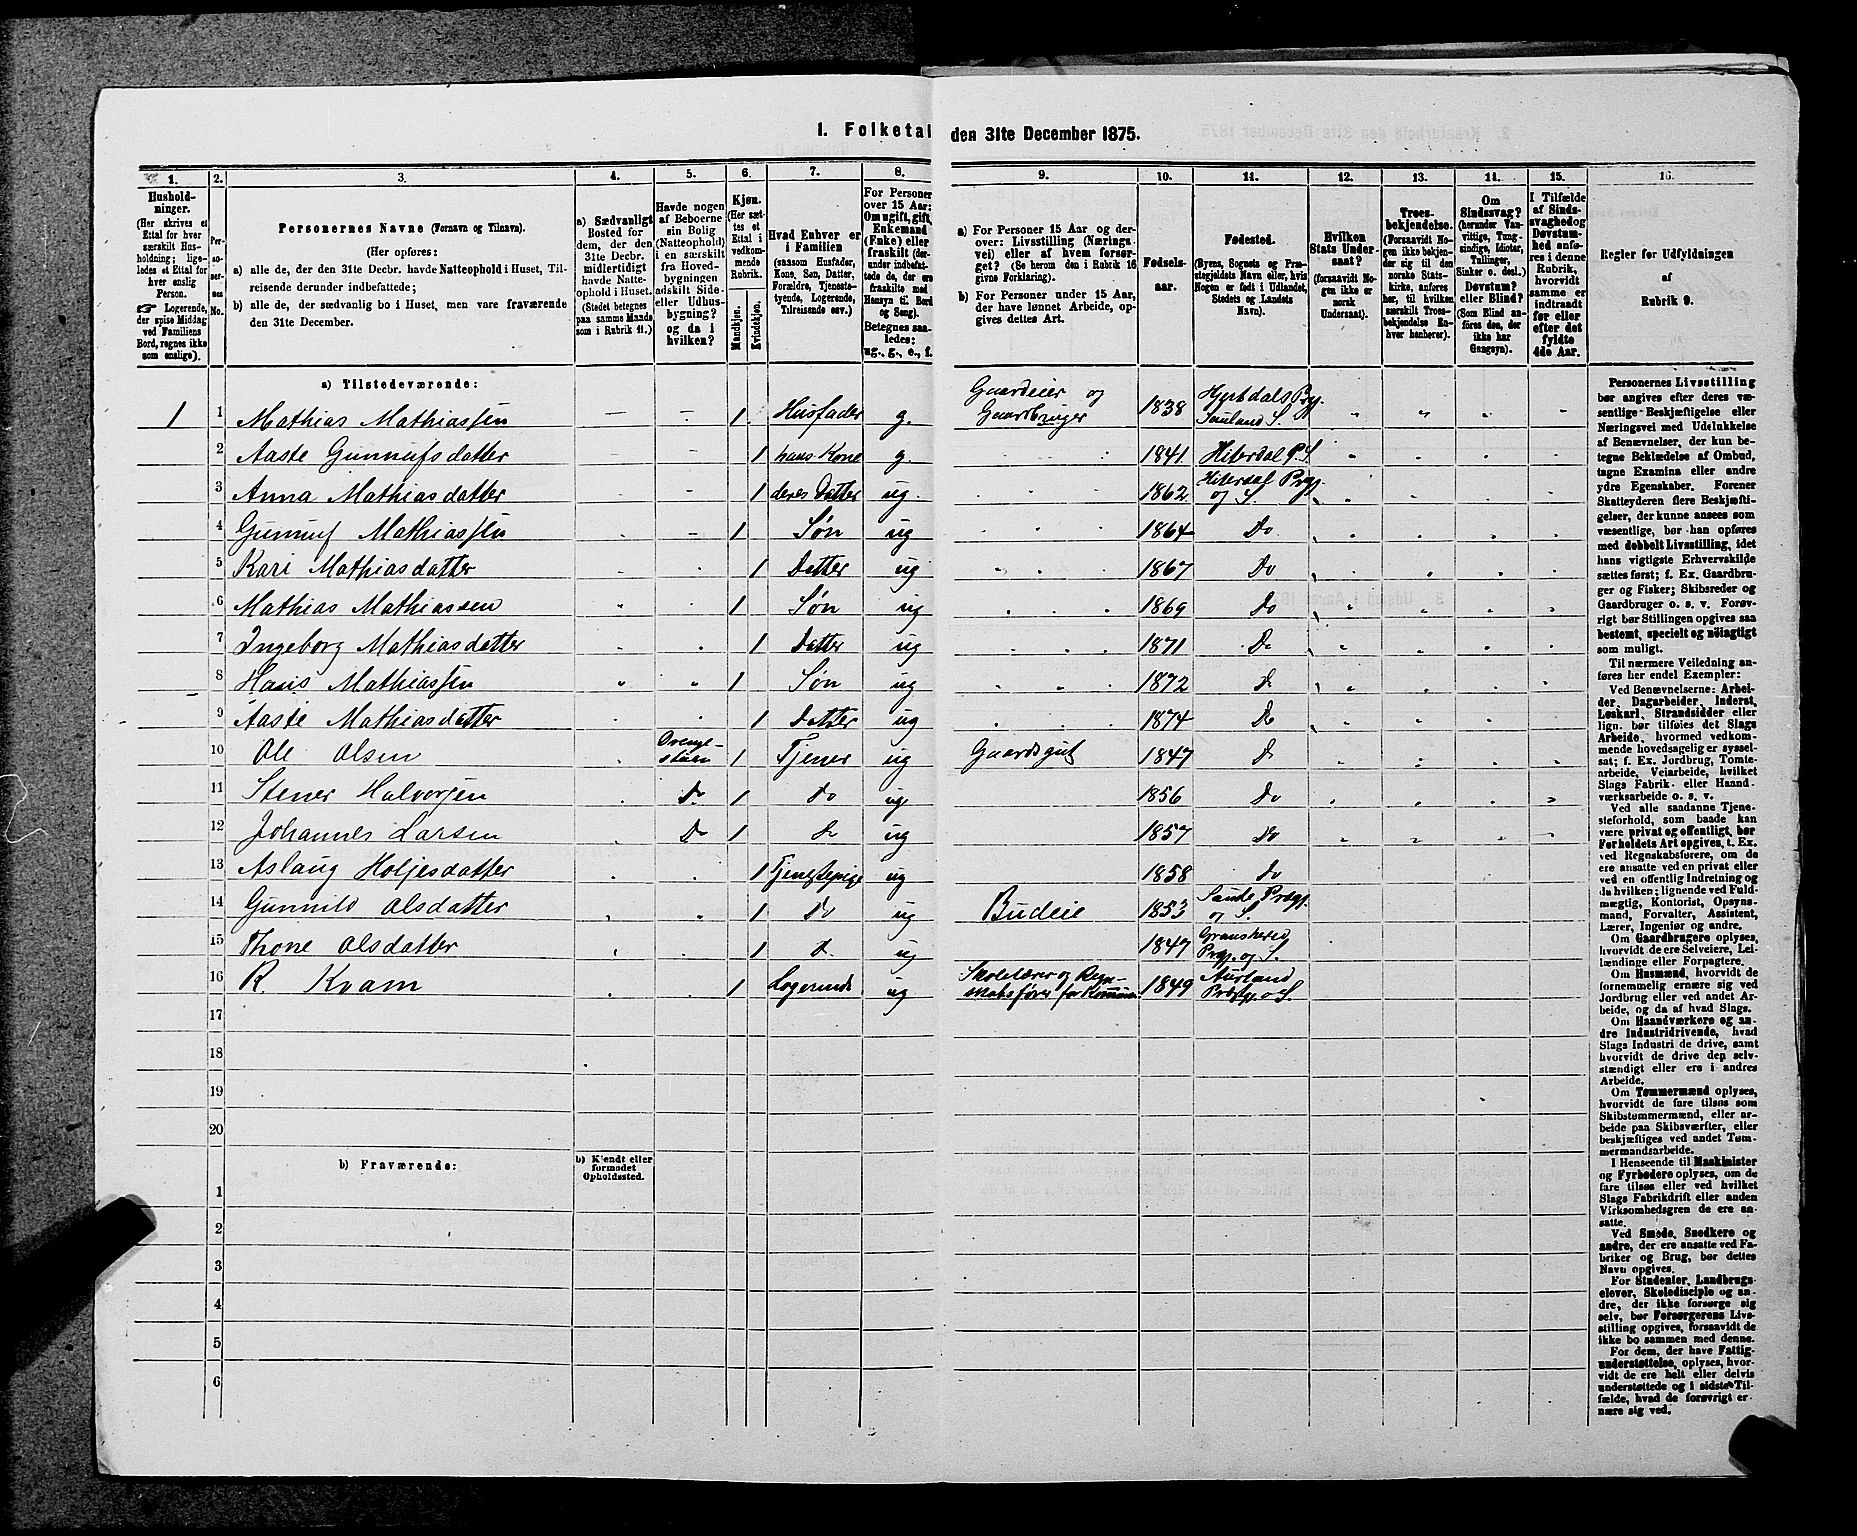 1. Folketal den 31te December 1875.
1.
2.
3.
4.
5.
6.
7.
8.
9.
10.
11.
12.
13.
14.
15.
16.
Hushold-
ninger.
(Her skrives et
Ettal for hver
særskilt Hus-
holdning; lige-
ledes et Ettal for
hver enslig
Person.
☞ Logerende,
der spise Middag
ved Familiens
Bord, regnes ikke
som enslige).
Per-
soner-
nes
No.
Personernes Navne (Fornavn og Tilnavn).
(Her opføres:
a) alle de, der den 31te Decbr. havde Natteophold i Huset, Til-
reisende derunder indbefattede;
b) alle de, der sædvanlig bo i Huset, men vare fraværende
den 31te December.
a) Sædvanligt
Bosted for
dem, der den
31te Decbr.
midlertidigt
havde Natte-
ophold i Huset.
(Stedet betegnes
paa samme Maade
som i Rubrik 11.)
Havde nogen
af Beboerne
sin Bolig
(Natteophold)
i en særskilt
fra Hoved-
bygningen
adskilt Side-
eller Udhus-
bygning?
og da i
hvilken?
Kjøn.
(Her sæt-
tes et
Ettal i
vedkom-
mende
Rubrik.
Mandkjøn.
Kvindekjøn.
Hvad Enhver er
i Familien
(saasom Husfader,
Kone, Søn, Datter,
Forældre, Tjeneste-
tyende, Logerende,
Tilreisende osv.)
For Personer
over 15 Aar:
Om ugift, gift,
Enkemand
(Enke) eller
fraskilt (der-
under indbefat-
tede de, der ere
fraskilte med
Hensyn til Bord
og Seng).
Betegnes saa-
ledes:
ug., g., e., f.
a) For Personer 15 Aar og der-
over: Livsstilling (Nærings-
vei) eller af hvem forsør-
get? (Se herom den i Rubrik 16
givne Forklaring).
b) For Personer under 15 Aar,
der have lønnet Arbeide, op-
gives dettes Art.
Fødsels-
aar.
Fødested.
(Byens, Sognets og Præ-
stegjeldets Navn eller, hvis
Nogen er født i Udlandet,
Stedets og Landets
Navn).
Hvilken
Stats Under-
saat?
(forsaavidt No-
gen ikke er
norsk
Undersaat).
Troes-
bekjendelse.
(Forsaavidt No-
gen ikke bekjen-
der sig til den
norske Stats-
kirke, anføres
her, til hvilken
særskilt Troes-
bekjendelse En-
hver henhører).
Om
Sindssvag?
(herunder Van-
vittige, Tung-
sindige, Idioter,
Tullinger,
Sinker o. desl.)
Døvstum?
eller Blind?
(Som Blind an-
føres den, der
ikke har
Gangsyn).
I Tilfælde
af Sinds-
svaghed og
Døvstum-
hed anfø-
res i denne
Rubrik,
hvorvidt
samme er
indtraadt
før eller
efter det
fyldte
4de Aar.
Regler for Udfyldningen
af
Rubrik 9.
a) Tilstedeværende:
1 1 Mathias Mathiassen — — 1 Husfader g. Gaardeier og Gaardbruger 1838 Hjertdals Prgj. Sauland S.
2 Aaste Gunnufsdatter 1 hans Kone g. 1841 Hiterdal P. S.
3 Anna Mathiasdatter 1 deres Datter ug. 1862 Hiterdal Prgj. og S.
4 Gunnuf Mathiassen 1 Søn ug 1864 Do
5 Kari Mathiasdatter 1 Datter ug 1867 Do
6 Mathias Mathiassen 1 Søn ug 1869 Do
7 Ingeborg Mathiasdatter 1 Datter ug 1871 Do
8 Hans Mathiassen 1 Søn ug 1872 Do
9 Aaste Mathiasdatter 1 Datter ug 1874 Do
10 Ole Olsen Drengestuen 1 Tjener ug Gaardsgut 1847 Do
11 Stener Halvorsen Do 1 Do ug 1856 Do
12 Johannes Larsen Do 1 Do ug 1857 Do
13 Aslaug Holjesdatter 1 Tjenestepige ug 1858 Do
14 Gunnild Olsdatter 1 Do ug Budeie 1853 Saude Prgj. og S.
15 Thone Olsdatter 1 Do ug 1847 Gransherad Prgj. og S.
16 R. Kvam 1 Logerende ug Skolelærer og Regnskabsfører for Kommunen 1849 Aurland Præstgj. o S.
17
18
19
20
b) Fraværende:
b) Kjendt eller
formodet
Opholdssted.
1
2
3
4
5
6
Personernes Livsstilling
bør angives efter deres væ-
sentlige Beskjæftigelse eller
Næringsvei med Udelukkelse
af Benævnelser, der kun be-
tegne Beklædelse af Ombud,
tagne Examina eller andre
ydre Egenskaber. Forener
Skatteyderen flere Beskjæfti-
gelser, der kunne ansees som
væsentlige, bør han opføres
med dobbelt Livsstilling, idet
hans vigtigste Erhvervskilde
sættes først; f. Ex. Gaardbru-
ger og Fisker; Skibsreder og
Gaardbruger o. s. v. Forøv-
rigt bør Stillingen opgives saa
bestemt, specielt og nöiagtigt
som muligt.
Til nærmere Veiledning an-
føres her endel Exempler:
Ved Benævnelserne: Arbei-
der, Dagarbeider, Inderst,
Løskarl, Strandsidder eller
lign. bør tilføies det Slags
Arbeide, hvormed vedkom-
mende hovedsagelig er syssel-
sat; f. Ex. Jordbrug, Tomte-
arbeide, Veiarbeide, hvilket
Slags Fabrik- eller Haand-
værksarbeide o. s. v.
Ved alle saadanne Tjene-
steforhold, som baade kan
være privat og offentligt, bør
Forholdets Art opgives, t. Ex.
ved Regnskabsførere, om de
ere ansatte ved en privat eller
ved en offentlig Indretning og
da hvilken; lignende ved Fuld-
mægtig, Kontorist, Opsyns-
mand, Forvalter, Assistent,
Lærer, Ingeniør og andre.
Om Gaardbrugere oplyses,
hvorvidt de ere Selveiere, Lei-
lændinge eller Forpagtere.
Om Husmænd, hvorvidt de
fornemmelig ernære sig ved
Jordbrug eller ved andet Ar-
beide, og da af hvad Slags.
Om Haandværkere og an-
dre Industridrivende, hvad
Slags Industri de drive, samt
hvorvidt de drive den selv-
stændigt eller ere i andres
Arbeide.
Om Tømmermænd oplyses,
hvorvidt de fare tilsøs som
Skibstømmermænd, eller ar-
beide paa Skibsværfter, eller
beskjæftiges ved andet Tøm-
mermandsarbeide.
I Henseende til Maskinister
og Fyrbødere oplyses, om de
fare tilsøs eller ved hvilket
Slags Fabrikdrift eller anden
Virksomhedsgren de ere an-
satte.
Ved Smede, Snedkere og
andre, der ere ansatte ved Fa-
briker og Brug, bør dettes
Navn opgives.
For Studenter, Landbrugs-
elever, Skoledisciple og an-
dre, der ikke forsørge sig
selv, bør Forsørgerens Livs-
stilling opgives, forsaavidt de
ikke bo sammen med denne.
For dem, der have Fattig-
understøttelse, oplyses, hvor-
vidt de ere helt eller delvis
understøttede og i sidste Til-
fælde, hvad de forøvrigt er-
nære sig ved.